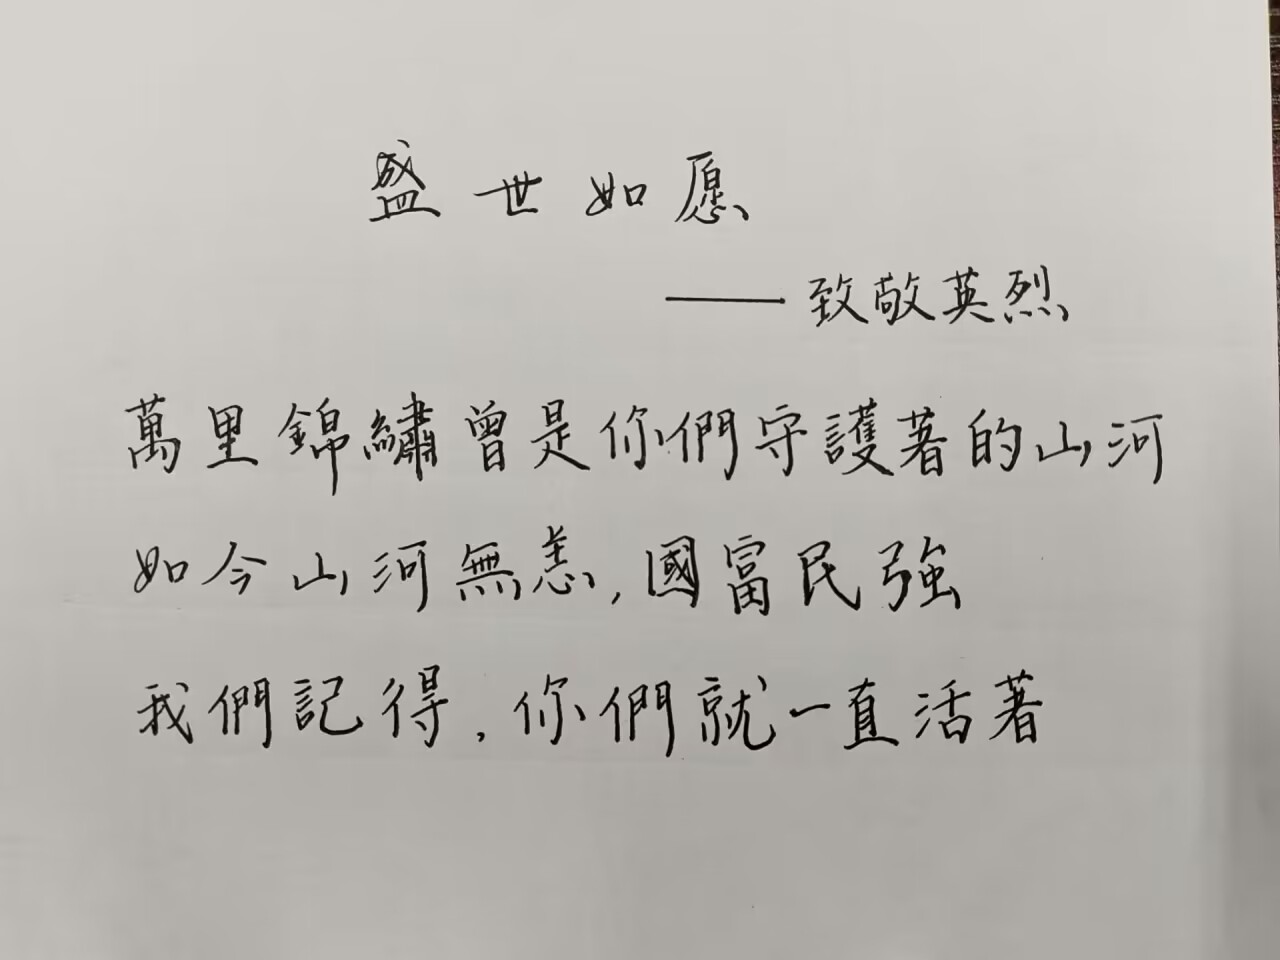 盛世如愿
——致敬英烈
萬里錦繡曾是你們守護著的山河
如今山河無恙,國富民強
我們記得,你們就一直活著